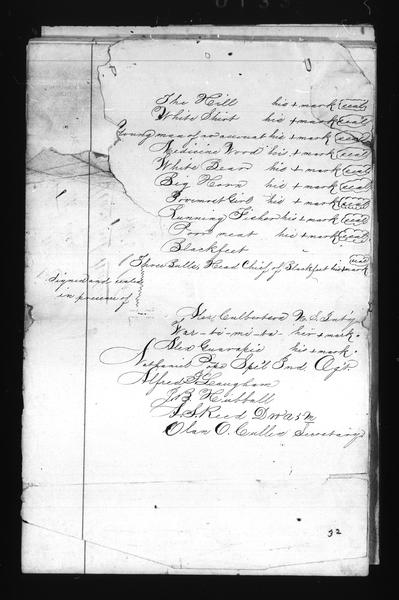 The Hill his + mark seal
White Shirt his + mark seal
Young man of no account his + mark seal
Medicine Wood his + mark seal
White Bear his + mark seal
Big Horn his + mark seal
Foremost Girl his + mark seal
Running Fisher his + mark seal
Poor meat his + mark seal
Blackfeet
Three Bulls Head Chief of Blackfeet his + mark seal
Signed and sealed
in presence of
Alex Culbertson U.S. Int'g
War-to-mi-ta- his + mark.
Alex Guarapie his + mark.
Nathaniel Pope Sp'l Ind Agt
Alfred J Leaugham
J. B. Hubball
A. S. Reed
Olan O. Cullen Secretary
32